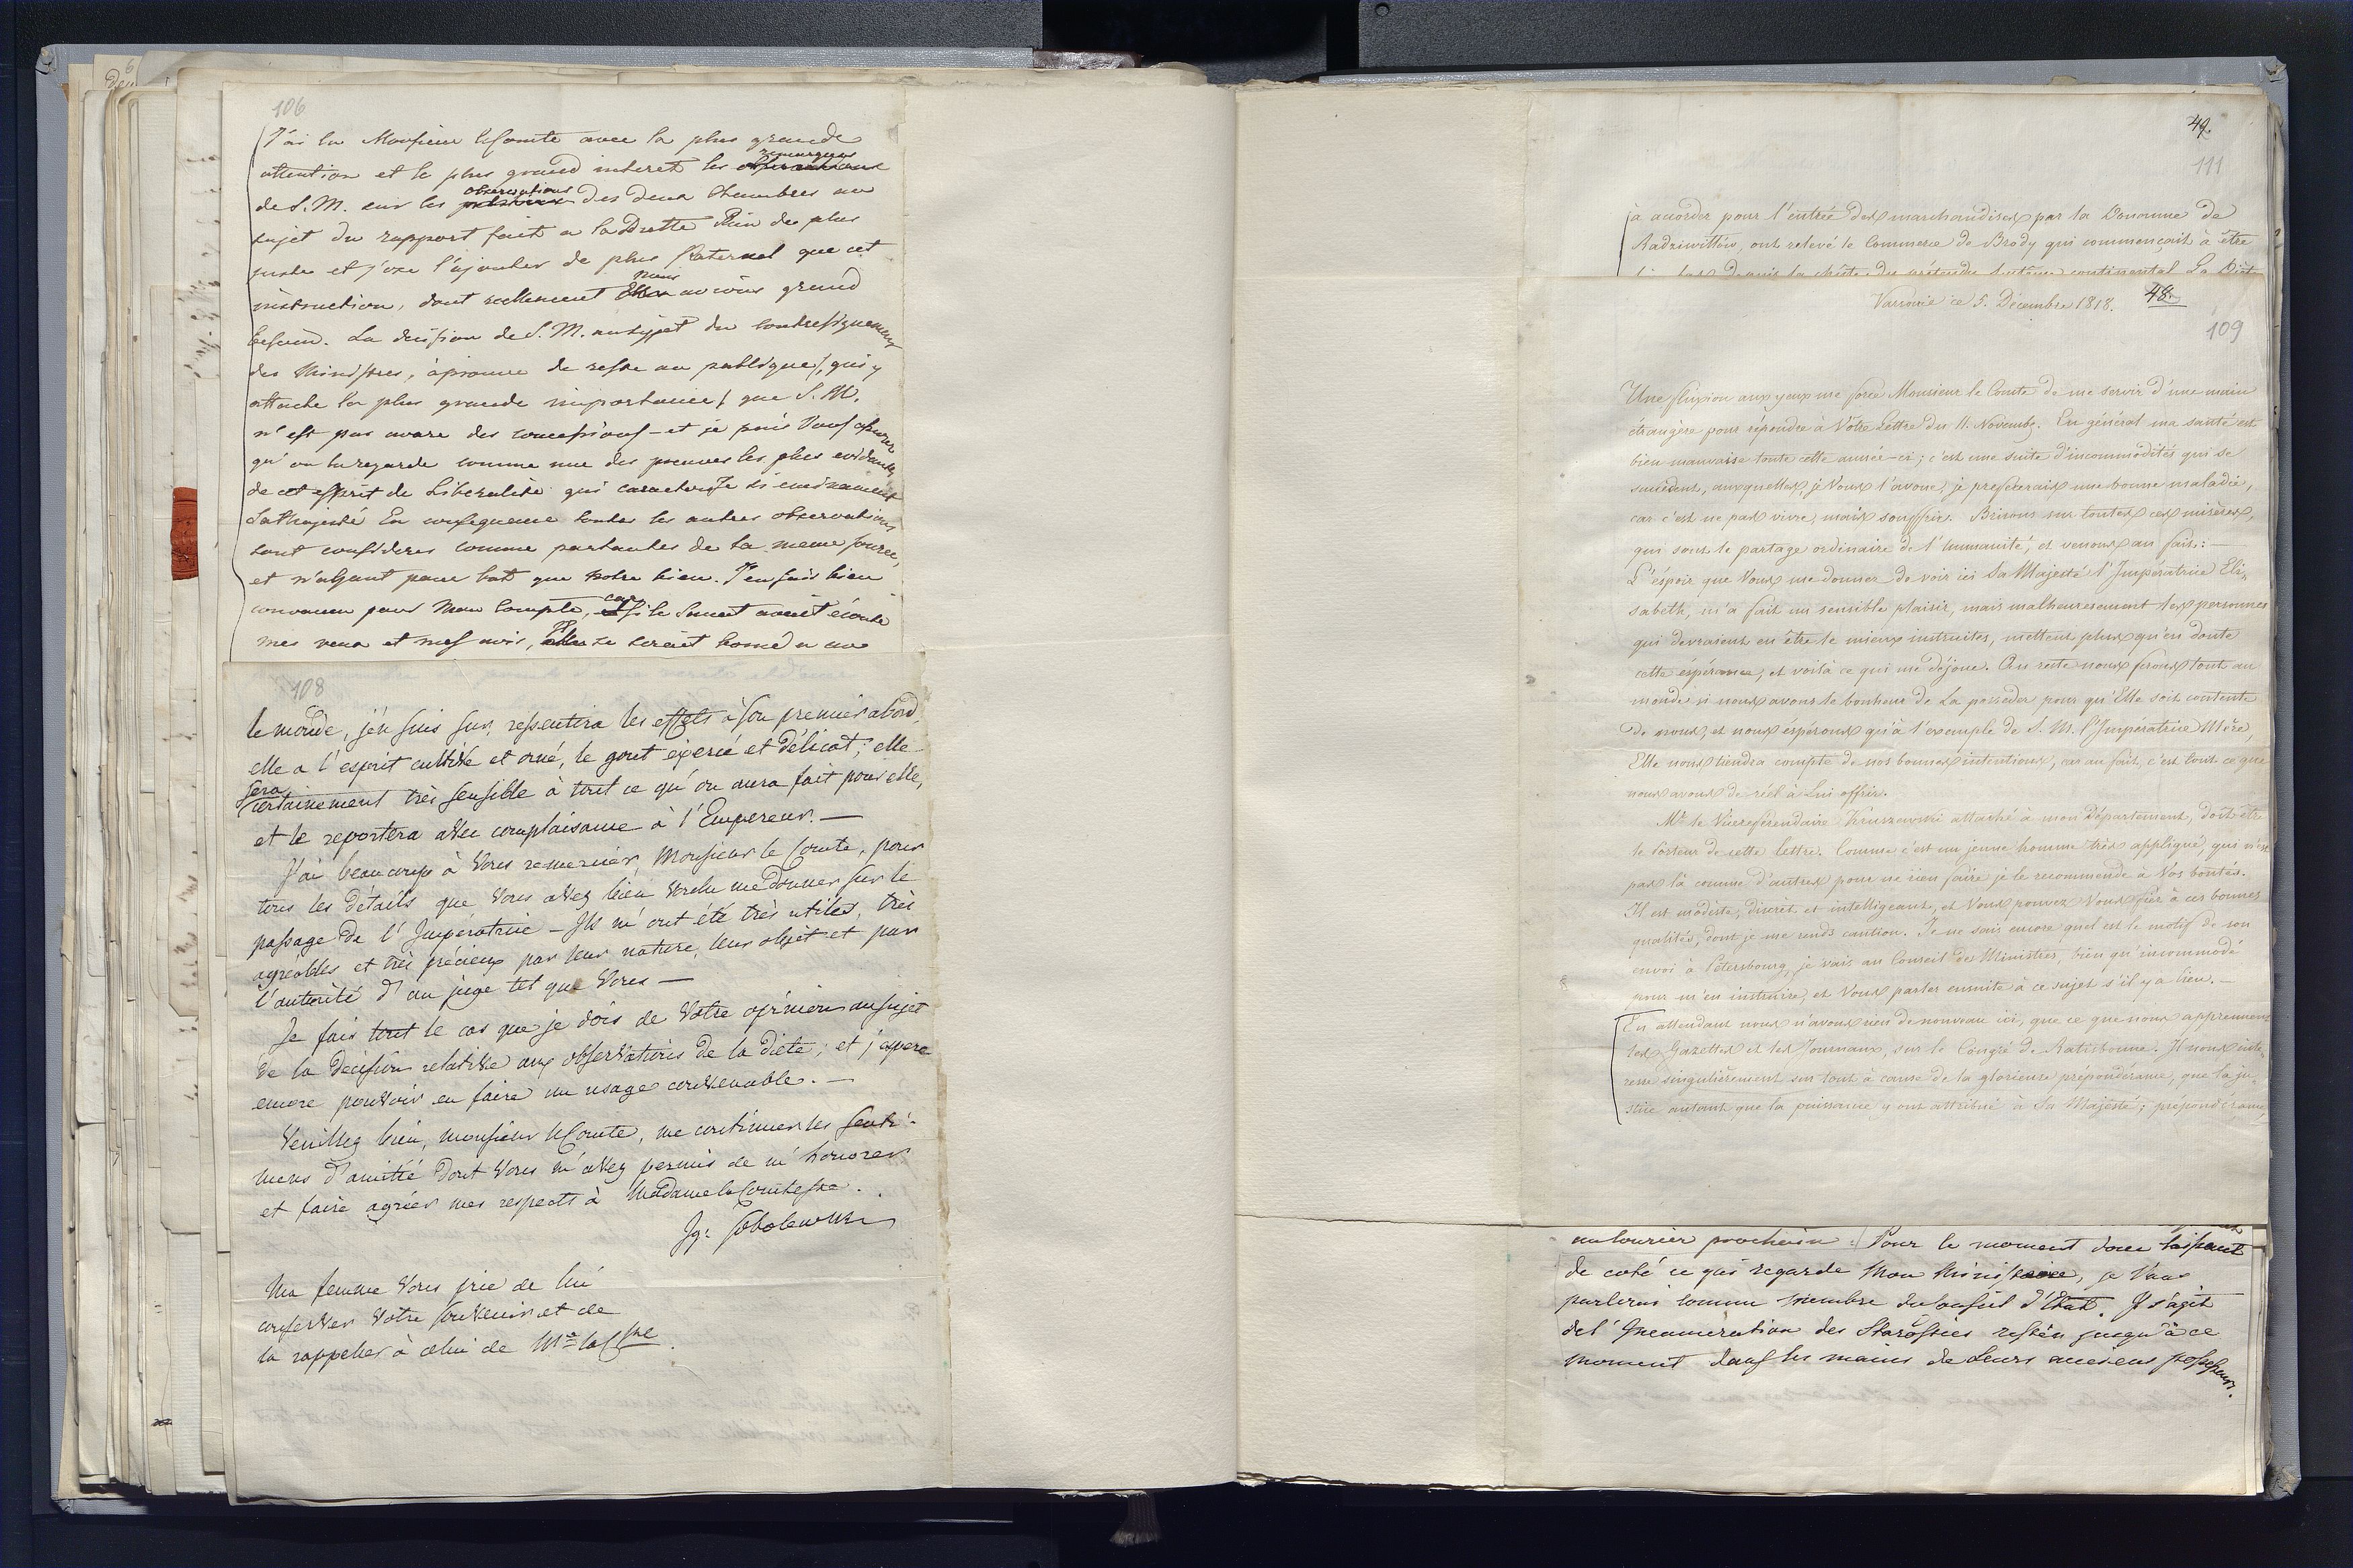 106
J'ai lu Monsieur le Comte avec la plus grande
attention et le plus grand interet les observations remarques
de S. M. sur les observations des deux Chambres au
sujet du rapport fait a la Diette Rien de plus
juste et j'ose l'ajouter de plus Paternel que cet
instruction, dont reellement nous avions grand
besoin. La decision de S. M. au sujet du contresignement
des Ministres, à prouvé de reste au publique /, qui y
attache la plus grande importance / que S. M.
n'est pas avare des concessions – et je puis Vous assurer
qu'on la regarde comme une des preuves les plus evidentes
de cet esprit de Liberalité qui caracterise si eminament
Sa Majesté En consequence toutes les autres observations
sont considerés comme partantes de la meme source,
et n'aÿant pour but que notre bien. J'en suis bien
convaincu pour Mon Compte, car si le Senat avait écouté
mes vœux et mes avis, il se serait borné a un
108
le monde, j'en suis sur, ressentira les effets à son premier abord,
elle a l'esprit cultivé et orné, le gout exercé et délicat; elle
sera certainement très sensible à tout ce qu'on aura fait pour elle,
et le reportera avec complaisance à l'Empereur. —
J'ai beaucoup à Vous remercier, Monsieur le Comte, pour
tous les détails que Vous avez bien voulu me donner sur le
passage de l'Impératrice — Ils m'ont été très utiles, très
agréables et très précieux par leur nature, leur objet et par
l'autorité d'un juge tel que Vous —
Je fais tout le cas que je dois de Votre opinion au sujet
de la décision relative aux observations de la diete; et j'espere
encore pouvoir en faire un usage convenable. —
Veuillez bien, Monsieur le Comte, me continuer les senti-
mens d'amitié dont Vous m'avez permis de m'honorer
et faire agréer mes respects à Madame la Comtesse.
Ig: Sobolewski
Ma femme Vous prie de lui
conserver Votre souvenir et de
la rappeller à celui de Me la Csse.
49.
111
à accorder pour l'entrée des marchandises par la Douanne de
Radziwiłłów, ont relevé le Commerce de Brody qui commençait à être
depuis la chûte du prétendu Système continental La Diète
Varsovie ce 5. Décembre 1818. 48.
109
Une fluxion aux yeux me force Monsieur le Comte de me servir d'une main
étrangère pour répondre à Vôtre Lettre du 11. Novembr. En général ma santé est
bien mauvaise toute cette année-ci; c'est une suite d'incommodités qui se
succèdent, auxquelles, je Vous l'avoue, je prefèrerais une bonne maladie,
car c'est ne pas vivre, mais souffrir. Brisons sur toutes ces misères,
qui sont le partage ordinaire de l'humanité, et venons au fait: —
L'éspoir que Vous me donnez de voir ici Sa Majesté l'Impératrice Eli-
sabeth, m'a fait un sensible plaisir, mais malheureusement les personnes
qui devraient en être le mieux instruites, mettent plus qu'en doute
cette éspérance, et voilà ce qui me déjoue. Au reste nous ferons tout au
monde si nous avons le bonheur de La posséder pour qu'Elle soit contente
de nous, et nous éspérons qu'à l'exemple de S. M. l'Impératrice Mère,
Elle nous tiendra compte de nos bonnes intentions, car au fait, c'est tout ce que
nous avons de réel à Lui offrir.
Mr le Viceréferendaire Kruszewski attaché à mon Département, doit être
le Porteur de cette lettre. Comme c'est un jeune homme très appliqué, qui n'est
pas là comme d'autres pour ne rien faire je le recommende à Vos bontés.
Il est modeste, discret et intelligeant, et Vous pouvez Vous fier à ces bonnes
qualités, dont je me rends caution. Je ne sais encore quel est le motif de son
envoi à Pétersbourg, je vais au Conseil des Ministres, bien qu'incommodé
pour m'en instruire, et Vous parler ensuite à ce sujet s'il y a lieu. —
En attendant nous n'avons rien de nouveau ici, que ce que nous apprennent
les Gazettes et les Journaux, sur le Congrè de Ratisbonne. Il nous inte-
resse singulièrement sur tout à cause de la glorieuse prépondérance, que la ju-
stice autant que la puissance y ont attribué à Sa Majesté; prépondérance
au Courier prochain. Pour le moment donc laissant
de coté ce qui regarde Mon Ministere, je Vous
parlerai comme membre du Conseil d'Etat. Il s'agit
de l'Incameration des Starosties restées jusqu'à ce
moment dans les mains de Leurs anciens possesseurs.